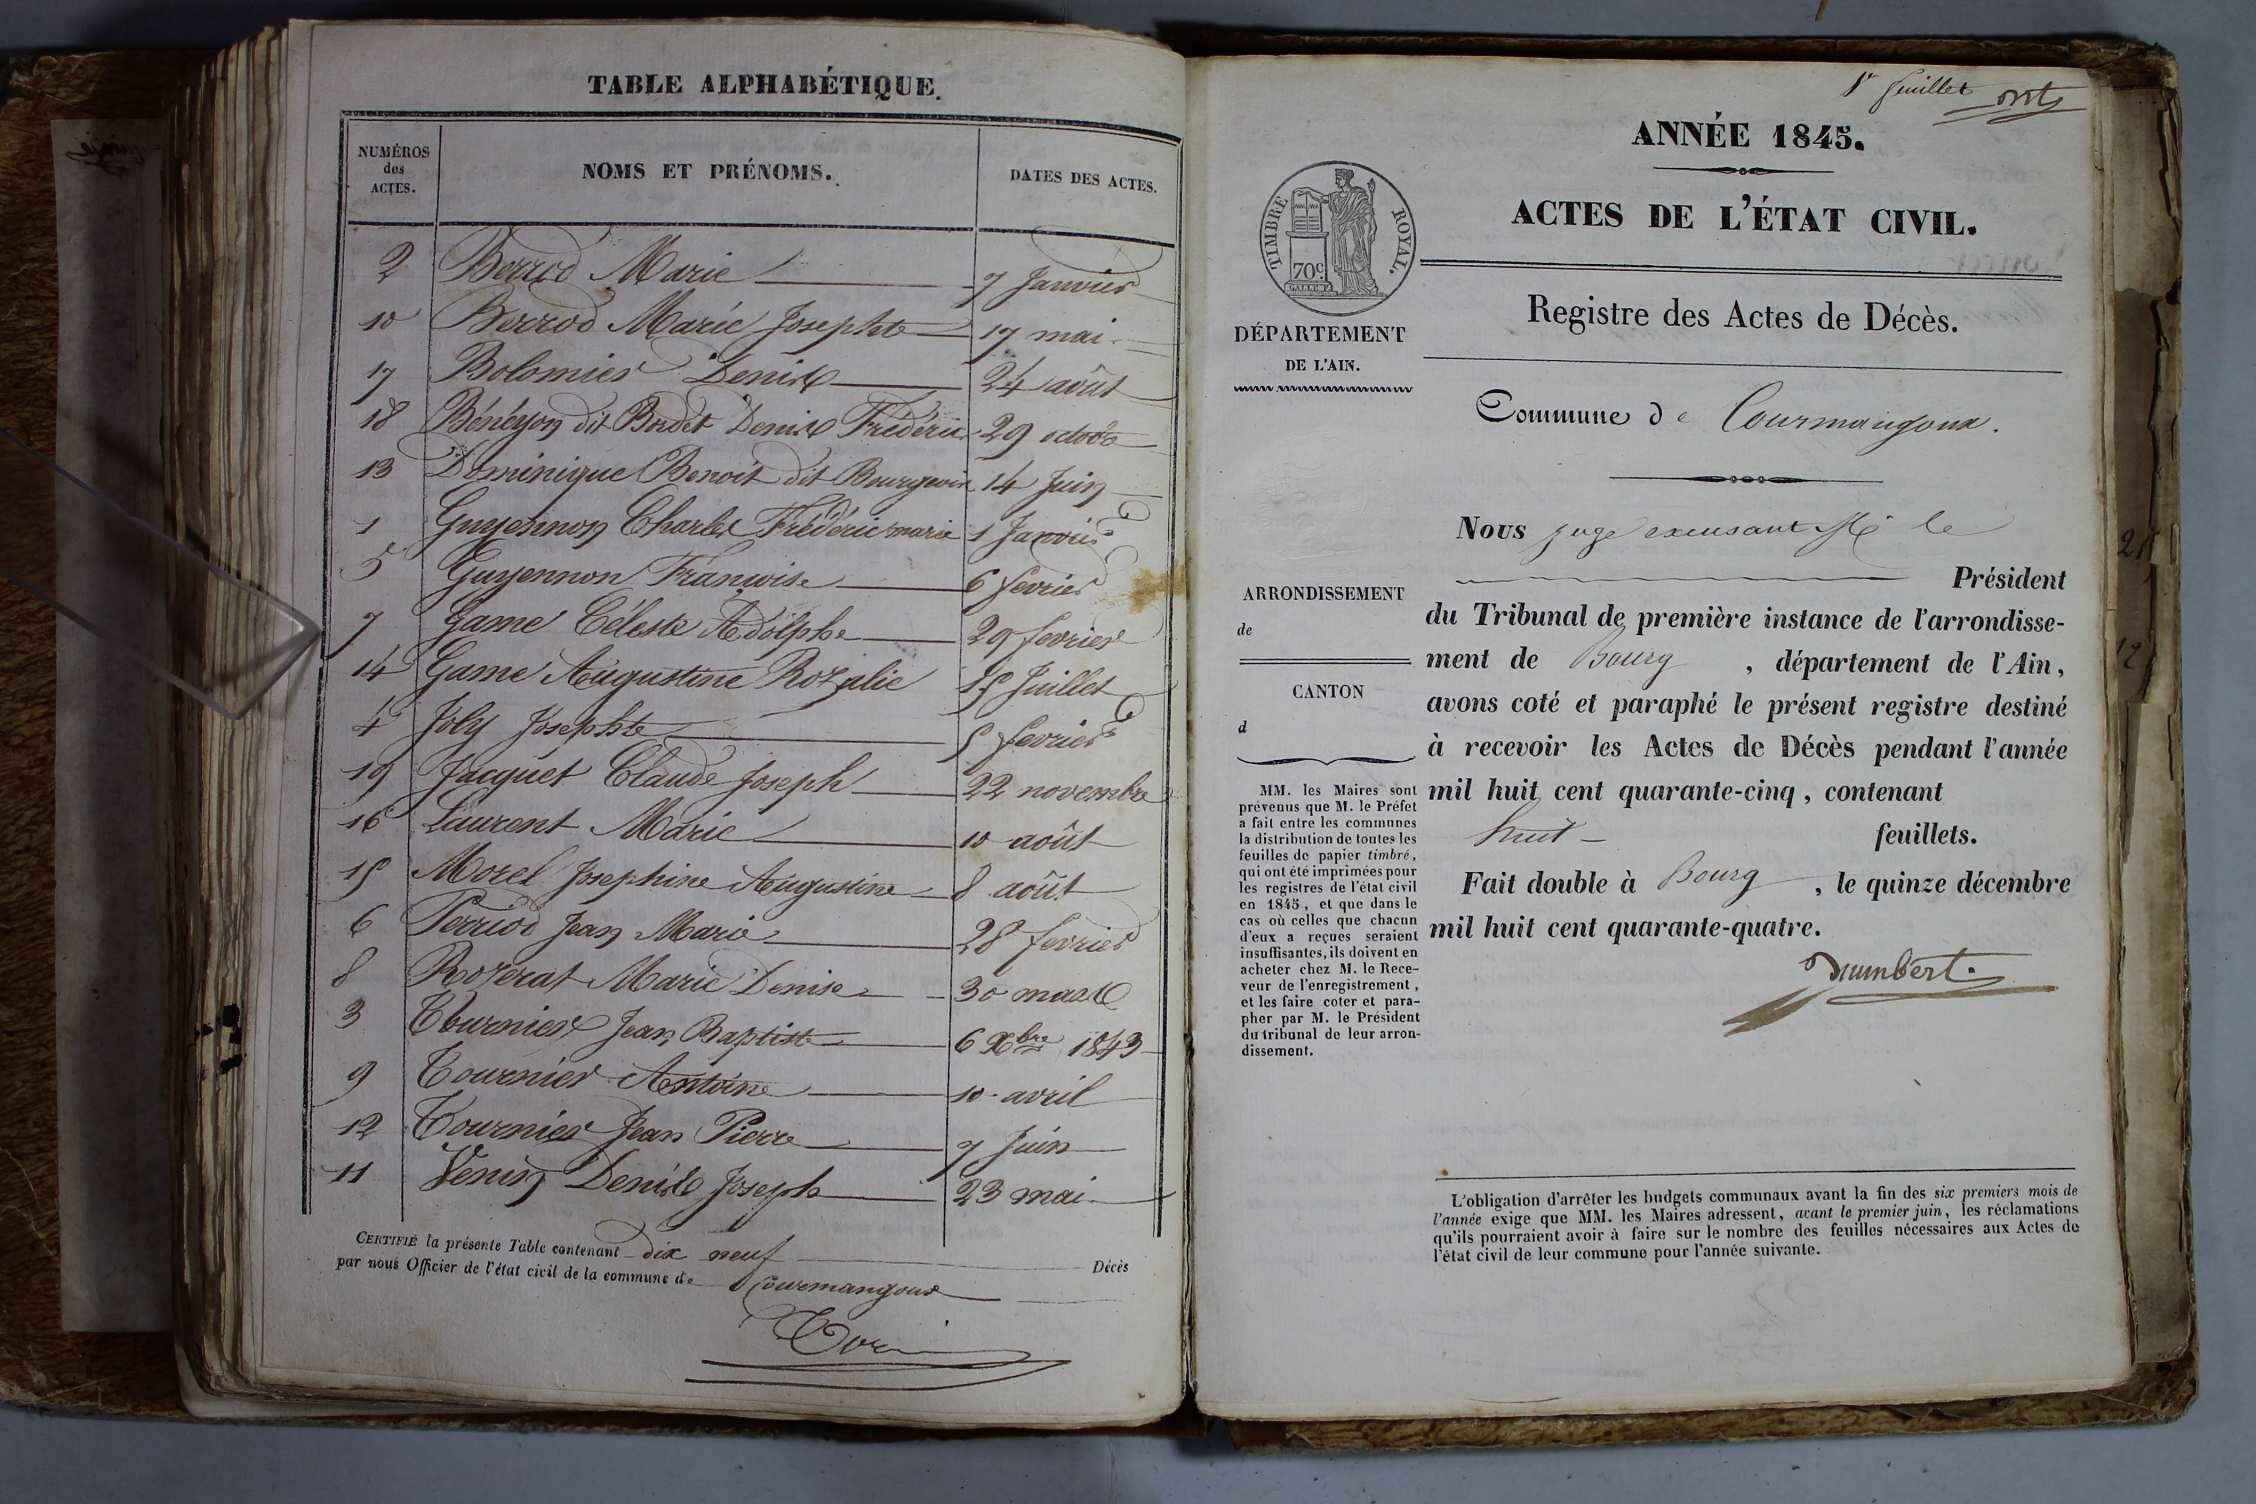 TABLE ALPHABÉTIQUE.
NUMÉROS des ACTES.
NOMS ET PRÉNOMS.
DATES DES ACTES.
2 Berrod Marie 7 Janvier
10 Berrod Marie Josephte 17 mai
17 Bolomier Denise 24 août
18 Bénéyon dit Bordet Denise Frédéric 29 octobre
13 Dominique Benoit dit Bourgeois 14 Juin
1 Guyennon Charles Frédéric marie 1 Janvier
5 Guyennon Francoise 6 fevrier
7 Game Céleste Adolphe 29 fevrier
14 Game Augustine Rozalie 15 Juillet
4 Joly Josephte 5 fevrier
19 Jacquet Claude Joseph 22 novembre
16 Laurent Marie 10 août
15 Morel Josephine Augustine 8 août
6 Perriod Jean Marie 28 fevrier
8 Rozerat Marie Denise 30 mars
3 Tournier Jean Baptiste 6 Xbre 1843
9 Tournier Antoine 10 avril
12 Tournier Jean Pierre 7 Juin
11 Venin Denise Joseph 23 mai
CERTIFIÉ la présente Table contenant dix neuf Décès
par nous Officier de l'état civil de la commune de Courmangoux
1r feuillet
ANNÉE 1845.
ACTES DE L'ÉTAT CIVIL.
TIMBRE ROYAL.
70c.
Registre des Actes de Décès.
DÉPARTEMENT
DE L'AIN.
Commune de Courmangoux.
Nous juge excusant Mr le
Président
du Tribunal de première instance de l'arrondisse-
ment de Bourg, département de l'Ain,
avons coté et paraphé le présent registre destiné
à recevoir les Actes de Décès pendant l'année
mil huit cent quarante-cinq, contenant
huit feuillets.
Fait double à Bourg, le quinze décembre
mil huit cent quarante-quatre.
ARRONDISSEMENT
de
CANTON
d
MM. les Maires sont
prévenus que M. le Préfet
a fait entre les communes
la distribution de toutes les
feuilles de papier timbré,
qui ont été imprimées pour
les registres de l'état civil
en 1845, et que dans le
cas où celles que chacun
d'eux a reçues seraient
insuffisantes, ils doivent en
acheter chez M. le Rece-
veur de l'enregistrement,
et les faire coter et para-
pher par M. le Président
du tribunal de leur arron-
dissement.
L'obligation d'arrêter les budgets communaux avant la fin des six premiers mois de
l'année exige que MM. les Maires adressent, avant le premier juin, les réclamations
qu'ils pourraient avoir à faire sur le nombre des feuilles nécessaires aux Actes de
l'état civil de leur commune pour l'année suivante.